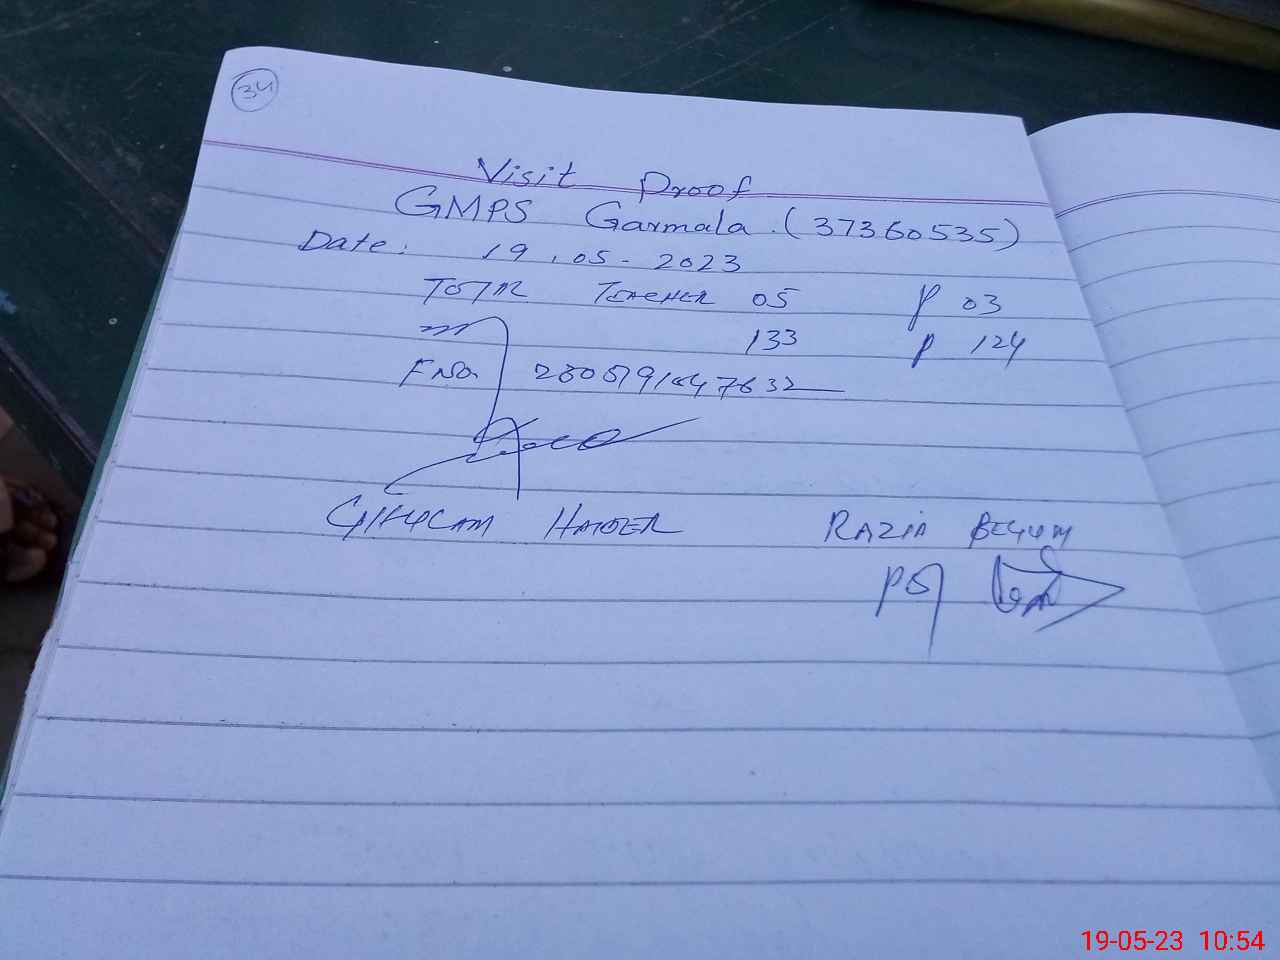 34
Visit Proof
GMPS Garmala. (37360535)
Date: 19.05-2023
TOTAL TEACHER 05 P 03
133 P 124
F No.
HAIDER RAZIA BEGUM
19-05-23 10:54